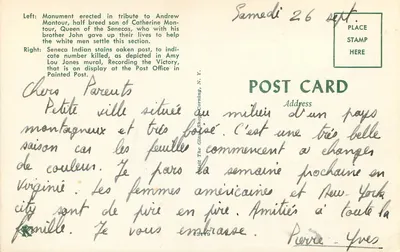 Left: Monument erected in tribute to Andrew
Montour, half breed son of Catherine Mon-
tour, Queen of the Senecas, who with his
brother John gave up their lives to help
the white men settle this section.
Right: Seneca Indian stains oaken post, to indi-
cate number killed, as depicted in Amy
Lou Jones mural, Recording the Victory,
that is on display at the Post Office in
Painted Post.
Samedi 26 sept.
PLACE
STAMP
HERE
POST CARD
Address
Chers Parents
Petite ville située au milieu d'un pays
montagneux et très boisé. C'est une très belle
saison car les feuilles commencent à changer
de couleur. Je pars la semaine prochaine en
Virginie. Les femmes américaines et New York
city sont de pire en pire. Amitiés à toute la
famille. Je vous embrasse.
Pierre-Yves